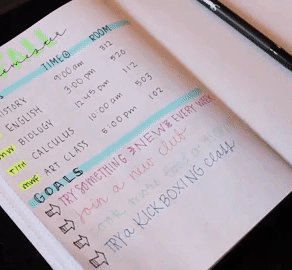 semester
TIME ROOM
HISTORY 9:00 am 312
ENGLISH 3:00 pm 520
BIOLOGY 12:45 pm 112
CALCULUS 10:00 am 503
MWF ART CLASS 5:00 pm 102
GOALS
TRY SOMETHING NEW EVERY WEEK
Join a new club
TRY a KICKBOXING class